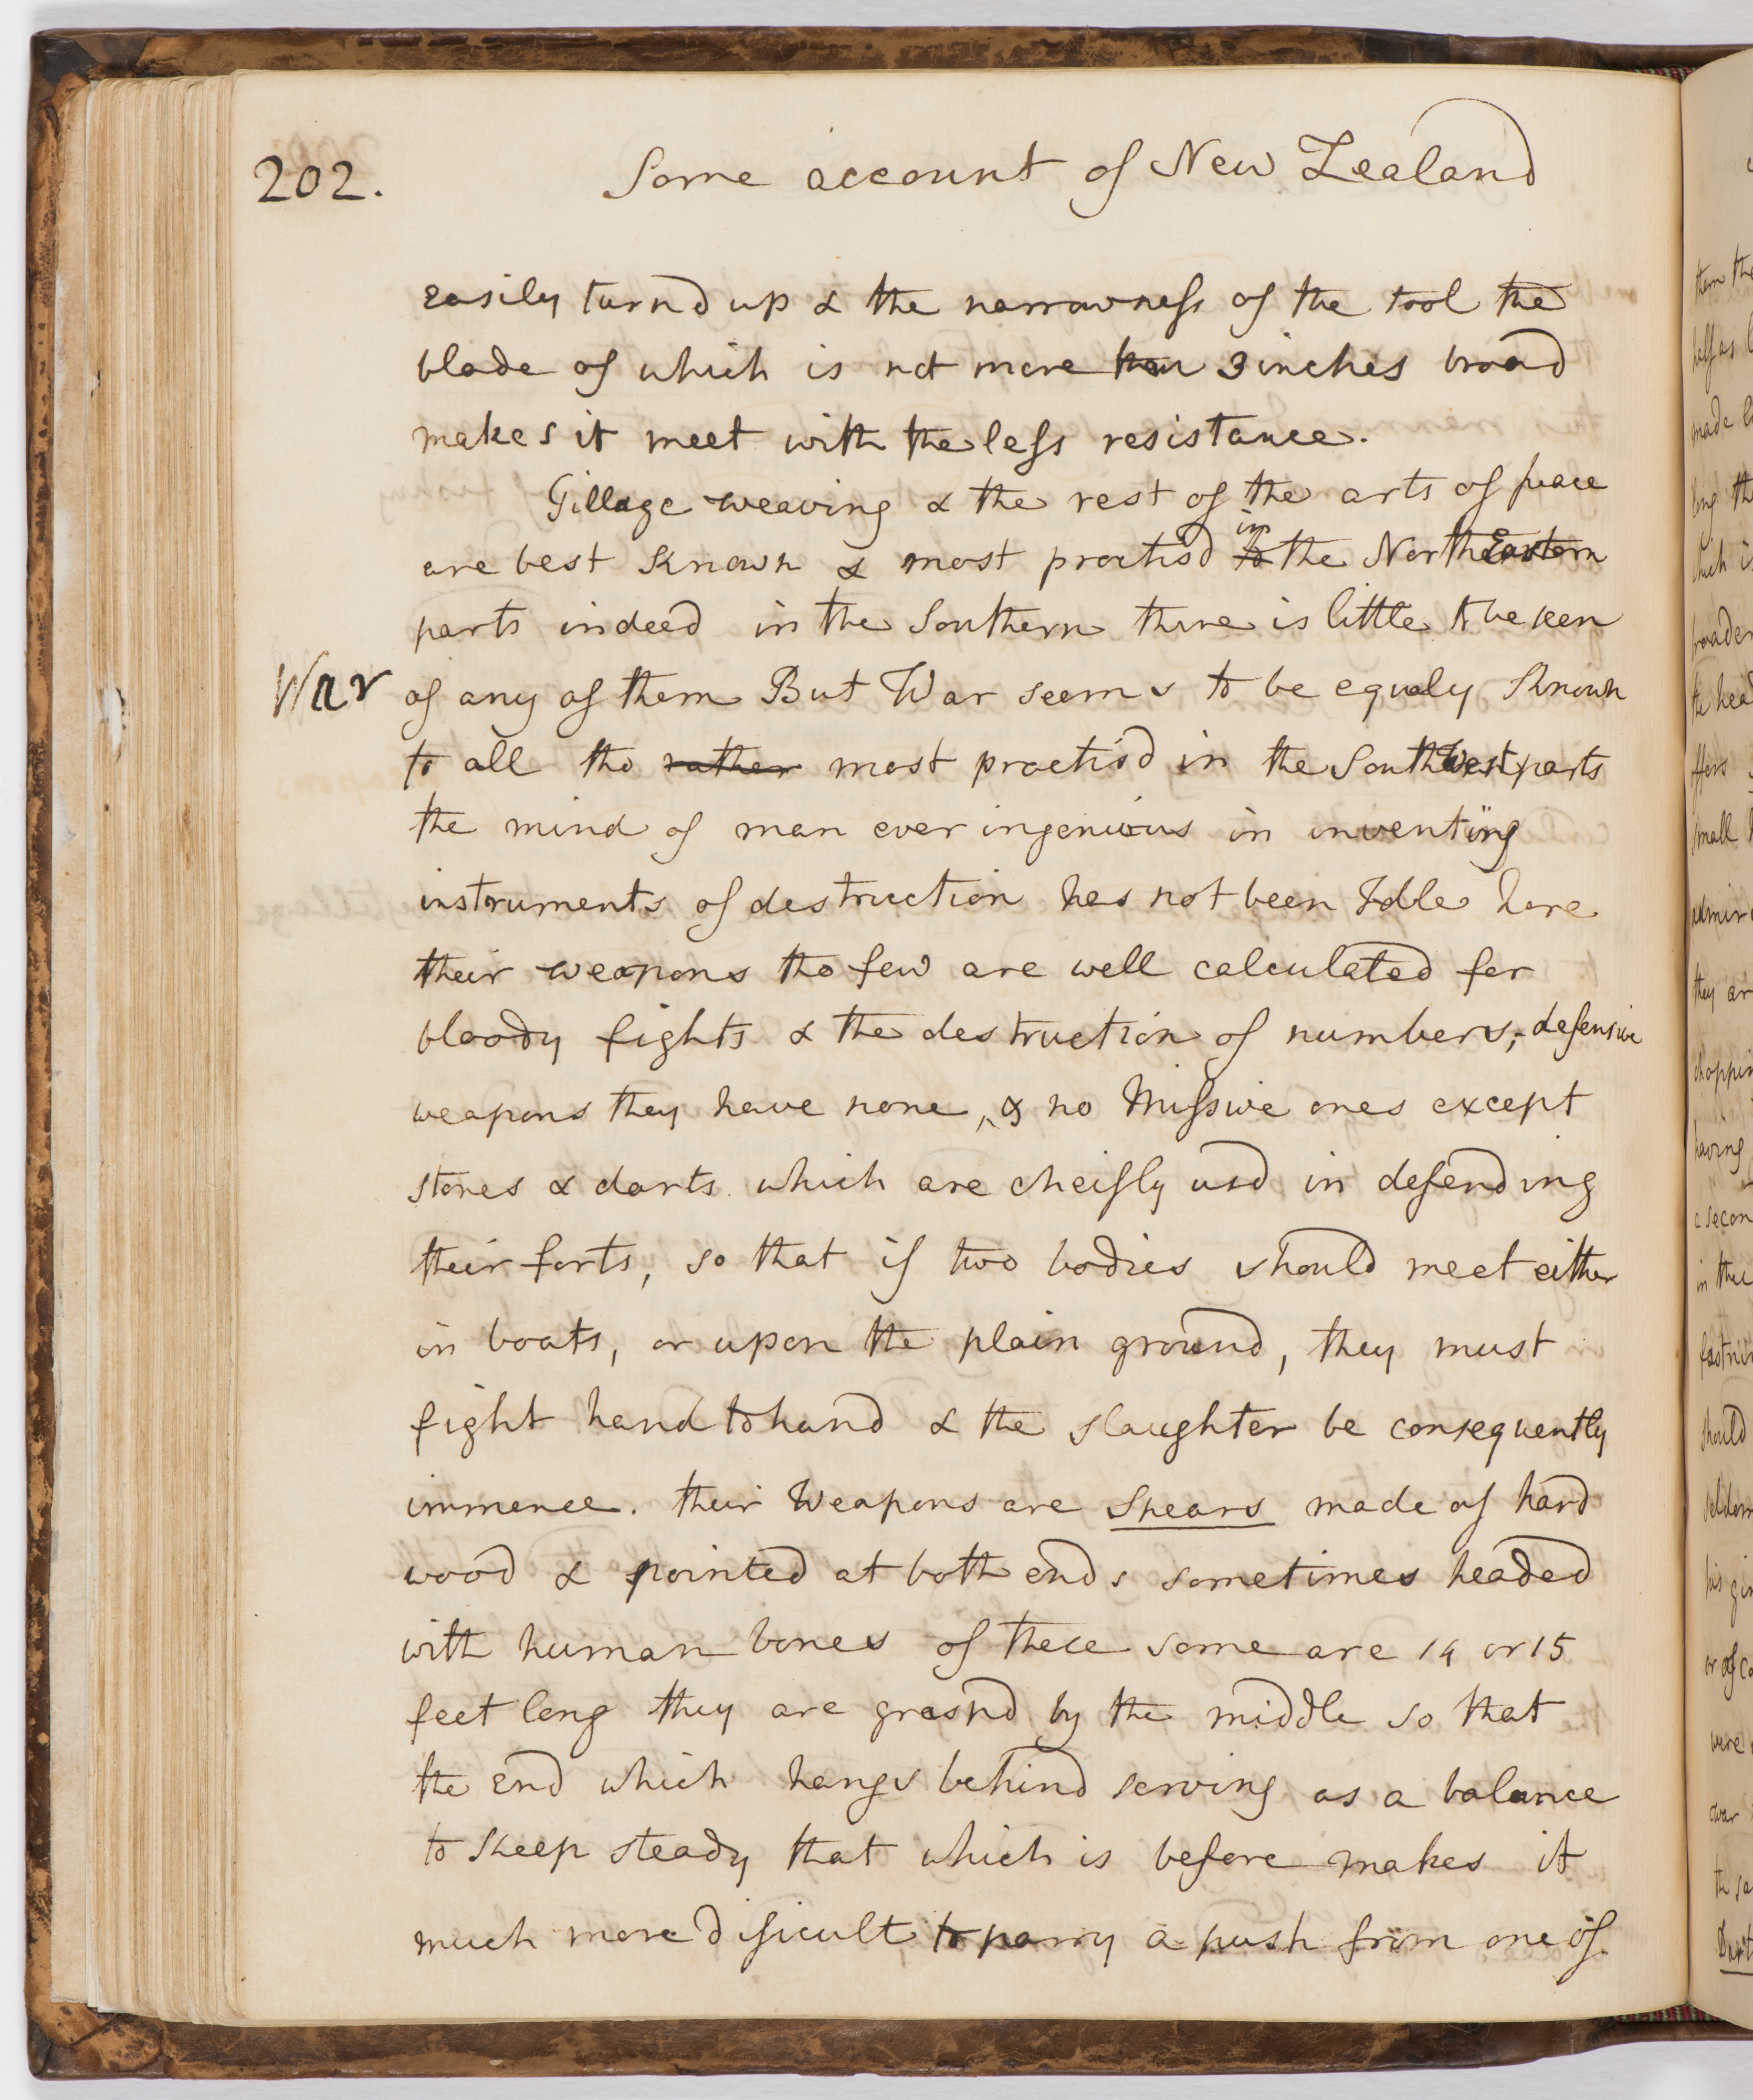 202.
Some account of New Zealand
easily turnd up & the narrowness of the tool the
blade of which is not more than 3 inches broad
makes it meet with the less resistance.
Tillage weaving & the rest of the arts of peace
are best known & most practisd in the North Eastern
parts indeed in the Southern there is little to be seen
War
of any of them But War seems to be equaly known
to all tho rather most practis'd in the South West parts
the mind of man ever ingenious in inventing
instruments of destruction has not been Idle here
their weapons tho few are well calculated for
bloody fights & the destruction of numbers, defensive
weapons they have none, & no Missive ones except
stones & darts which are cheifly usd in defending
their forts, so that if two bodies should meet either
in boats, or upon the plain ground, they must
fight hand to hand & the slaughter be consequently
immence. their Weapons are Spears made of hard
wood & pointed at both ends sometimes headed
with human bones of these some are 14 or 15
feet long they are graspd by the middle so that
the end which hangs behind serving as a balance
to keep steady that which is before makes it
much more dificult to parry a push from one of